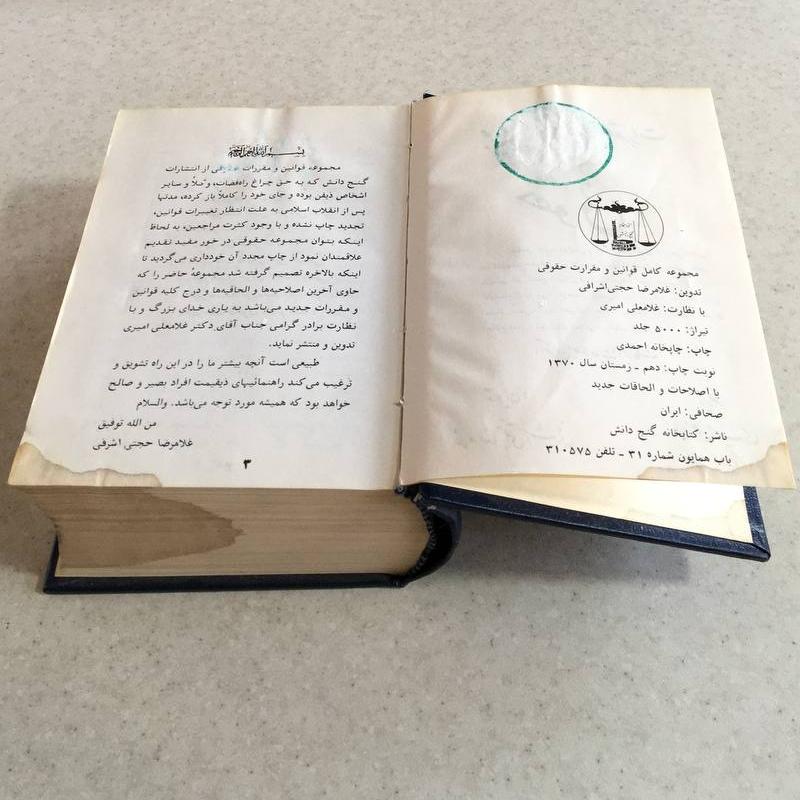 مجموعه کامل قوانین و مقرارت حقوقی
تدوین: غلامرضا حجتی‌اشرفی
با نظارت: غلامعلی امیری
تیراژ: ۵۰۰۰ جلد
چاپ: چاپخانه احمدی
نوبت چاپ: دهم ـ زمستان سال ۱۳۷۰
با اصلاحات و الحاقات جدید
صحافی: ایران
ناشر: کتابخانه گنج دانش
باب همایون شماره ۳۱ ـ تلفن ۳۱۰۵۷۵
بسم الله الرحمن الرحیم
مجموعه قوانین و مقررات حقوقی از انتشارات
گنج دانش که به حق چراغ راه‌قضات، وکلا و سایر
اشخاص ذینفع بوده و جای خود را کاملاً باز کرده، مدتها
پس از انقلاب اسلامی به علت انتظار تغییرات قوانین،
تجدید چاپ نشده و با وجود کثرت مراجعین، به لحاظ
اینکه بتوان مجموعه حقوقی در خور مفید تقدیم
علاقمندان نمود از چاپ مجدد آن خودداری می‌گردید تا
اینکه بالاخره تصمیم گرفته شد مجموعهٔ حاضر را که
حاوی آخرین اصلاحیه‌ها و الحاقیه‌ها و درج کلیه قوانین
و مقررات جدید می‌باشد به یاری خدای بزرگ و با
نظارت برادر گرامی جناب آقای دکتر غلامعلی امیری
تدوین و منتشر نماید.
طبیعی است آنچه بیشتر ما را در این راه تشویق و
ترغیب می‌کند راهنمائیهای ذیقیمت افراد بصیر و صالح
خواهد بود که همیشه مورد توجه می‌باشد. والسلام
من الله توفیق
غلامرضا حجتی اشرفی
۳